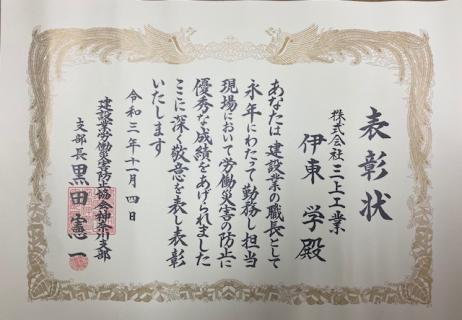 表彰状
株式会社三上工業
伊東 学殿
あなたは建設業の職長として
永年にわたって勤務し担当
現場において労働災害の防止に
優秀な成績をあげられました
ここに深く敬意を表し表彰
いたします
令和三年十一月四日
建設業労働災害防止協会神奈川支部
支部長 黒田憲一